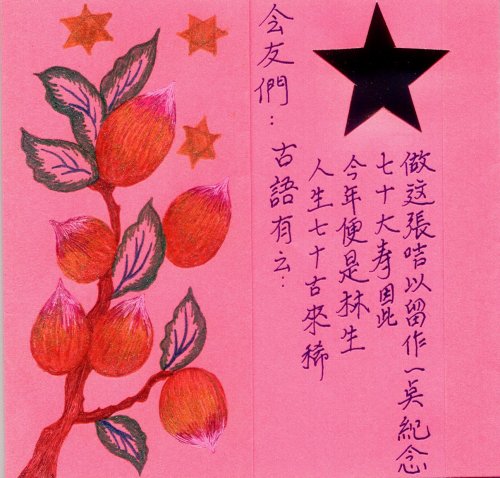 会友們：
古語有云：
人生七十古來稀
今年便是林生
七十大寿因此
做这張咭以留作一奌紀念